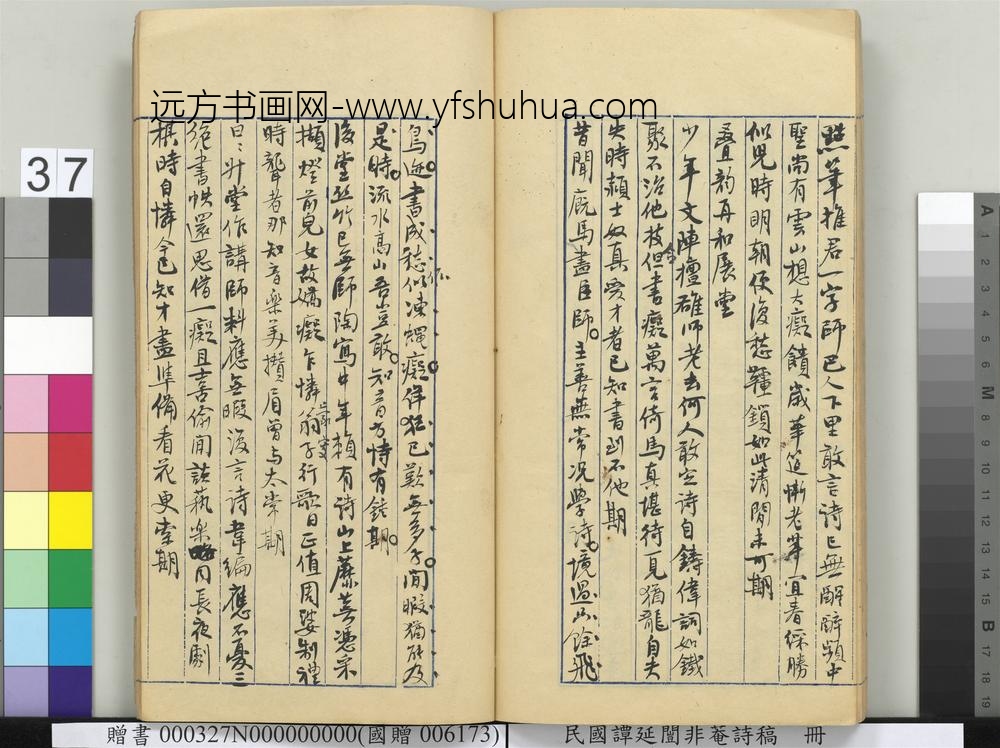 远方书画网-www.yfshuhua.com
點筆推君一字師巴人下里敢言詩已無酣醉頻中
聖尚有雲山想大癡饋歲華筵慚老輩宜春綵勝
似兒時明朝便復愁韁鎖如此清閒未可期
疊韵再和展堂
少年文陣擅雄師老去何人敢定詩自鑄偉詞如鐵
聚不治他技但書癡萬言倚馬真堪待一見猶龍自大
失時穎士奴真愛才者已知書到不他期
昔聞廄馬盡臣師主善無常况學詩境過山飛
鳥迹書成愁似凍蠅癡佯狂已歎無多子閒暇猶能及
是時流水高山吾豈敢知音方恃有鍾期
後堂絲竹已無師陶寫中年賴有詩山上蘼蕪憑采
擷燈前兒女故嬌癡乍憐翁子行歌日正值周婆制禮
時聾者那知音樂美攢眉曾与太常期
日日升堂作講師料應無暇復言詩韋編應不憂三
絕書帙還思借一癡且喜偷閒談藝樂 長夜劇
棋時自憐 已知才盡準備看花更索期
37
A 1 2 3 4 5 6 M 8 9 10 11 12 13 14 15 B 17 18 19
贈書 000327N000000000(國贈 006173)
民國譚延闓非菴詩稿 冊